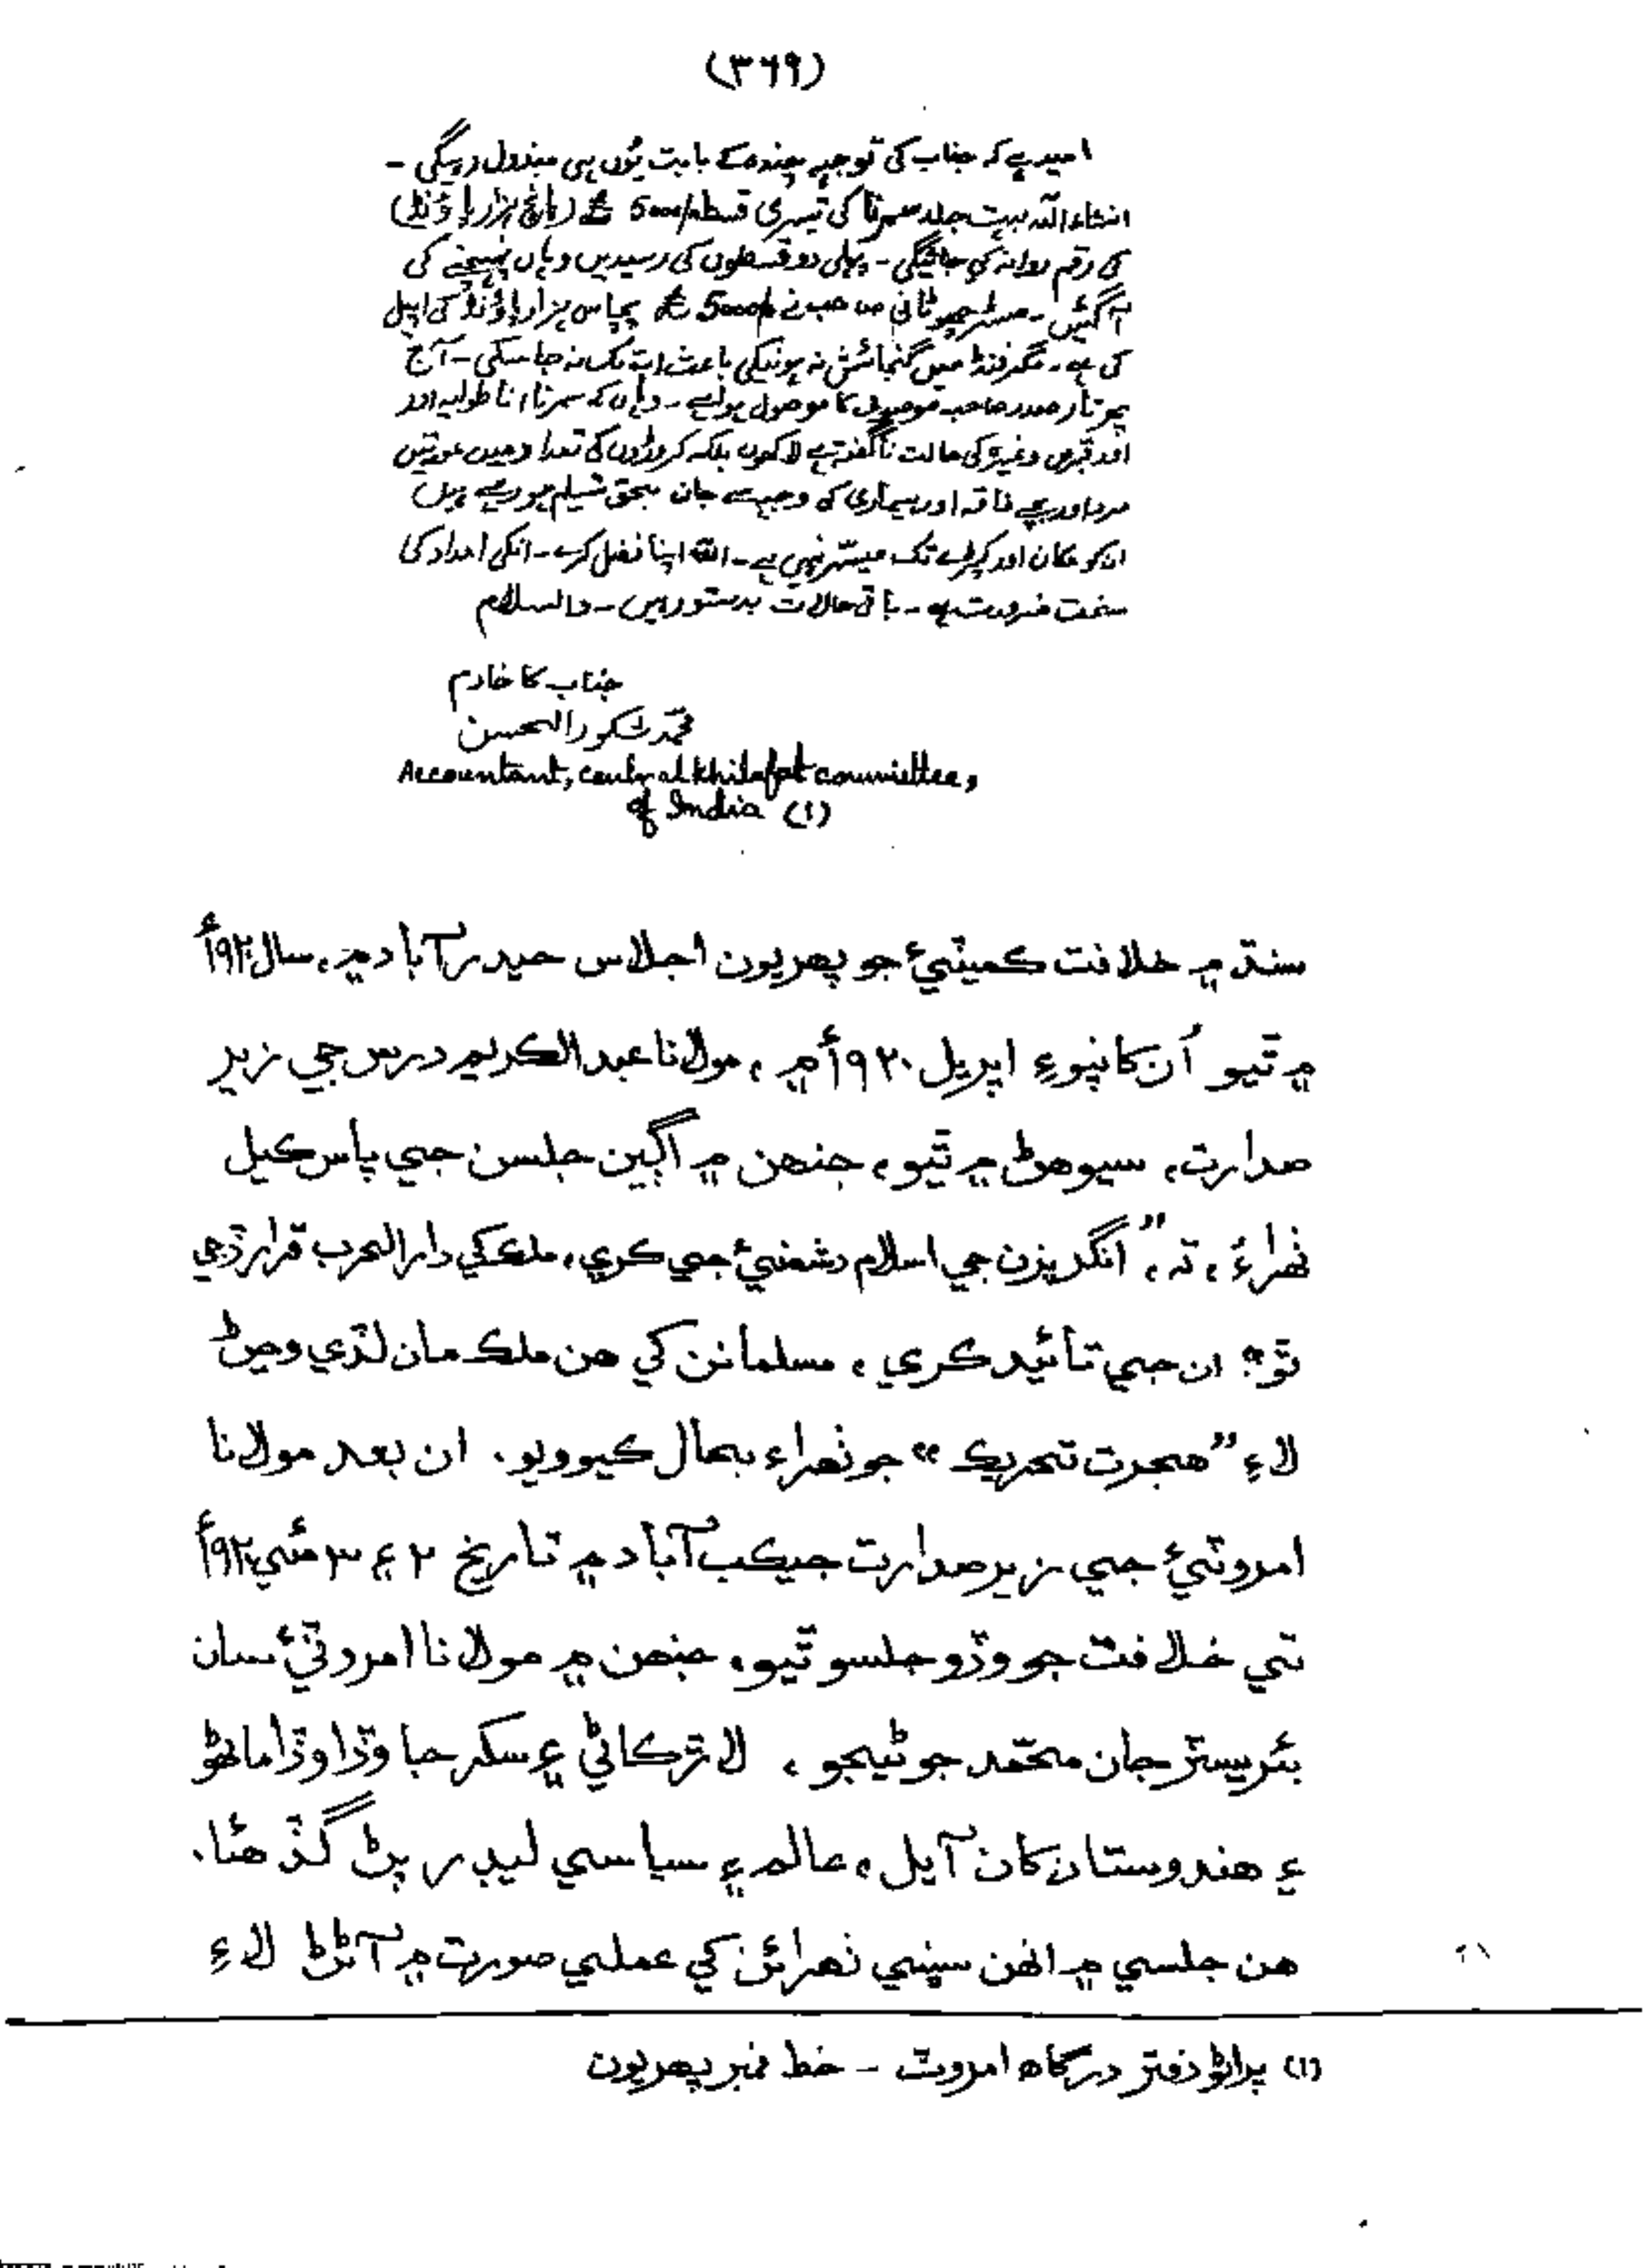 (٣٦٩)
امید ہے کہ جناب کی توجہہ چندہ کے بابت یُوں ہی مبذول رہیگی -
انشاء اللہ بہت جلد سمرنا کی تیسری قسط £ 5000/ (پانچ ہزار پاؤنڈ)
کی رقم روانہ کی جائیگی - پہلی دو قسطوں کی رسیدیں وہاں پہنچنے کی
آگئیں - مسٹر چھوٹانی صاحب نے £ 50000/ پچاس ہزار پاؤنڈ کی اپیل
کی ہے - مگر فنڈ میں گنجائش نہ ہونیکی باعث اب تک نہ جا سکی - آج
پھر تار صدر صاحب موصوف کا موصول ہوا ہے - وہاں کہ سمرنا، اناطولیہ اور
اور وغیرہ کی حالت ناگفتہ ہے لاکھوں بلکہ کروڑوں کی تعداد میں عورتیں
مرد اور بچے فاقہ اور بیماری کی وجہہ سے جان بحق تسلیم ہو رہے ہیں
انکو مکان اور کپڑے تک میسّر نہیں ہے - اللہ اپنا فضل کرے - انکی امداد کی
سخت ضرورت ہے - باقی حالات بدستور ہیں - والسلام
جناب کا خادم
محمّد شکور الحسن
Accountant, central khilafat committee,
of India (١)
سنڌ ۾ خلافت ڪميٽيءَ جو پھريون اجلاس حيدرآباد ۾، سال ١٩٢٠ع
۾ ٿيو اُن کانپوءِ اپريل ١٩٢٠ع ۾، مولانا عبدالڪريم درس جي زير
صدارت، سيوهڻ ۾ ٿيو، جنھن ۾ اڳين جلسن جي پاس ڪيل
ٺھراءُ، تہ، ”انگريزن جي اسلام دشمنيءَ جي ڪري، ملڪ کي دارالحرب قرار ڏجي
ٿو“ ان جي تائيد ڪري، مسلمانن کي هن ملڪ مان لڏي وڃڻ
لاءِ ”هجرت تحريڪ“ جو ٺھراءُ بحال ڪيو ويو. ان بعد مولانا
امروٽيءَ جي زير صدارت جيڪب آباد ۾ تاريخ ٢ ۽ ٣ مئي ١٩٢٠ع
تي خلافت جو وڏو جلسو ٿيو، جنھن ۾ مولانا امروٽيءَ سان
بئريسٽر جان محمّد جوڻيجو، لاڙڪاڻي ۽ سکر جا وڏا وڏا ماڻھو
۽ هندوستان کان آيل، عالم ۽ سياسي ليڊر پڻ گڏ هئا.
هن جلسي ۾ انھن سڀني ٺھرائن کي عملي صورت ۾ آڻڻ لاءِ
(١) پراڻو دفتر درگاھ امروٽ - خط نمبر پھريون